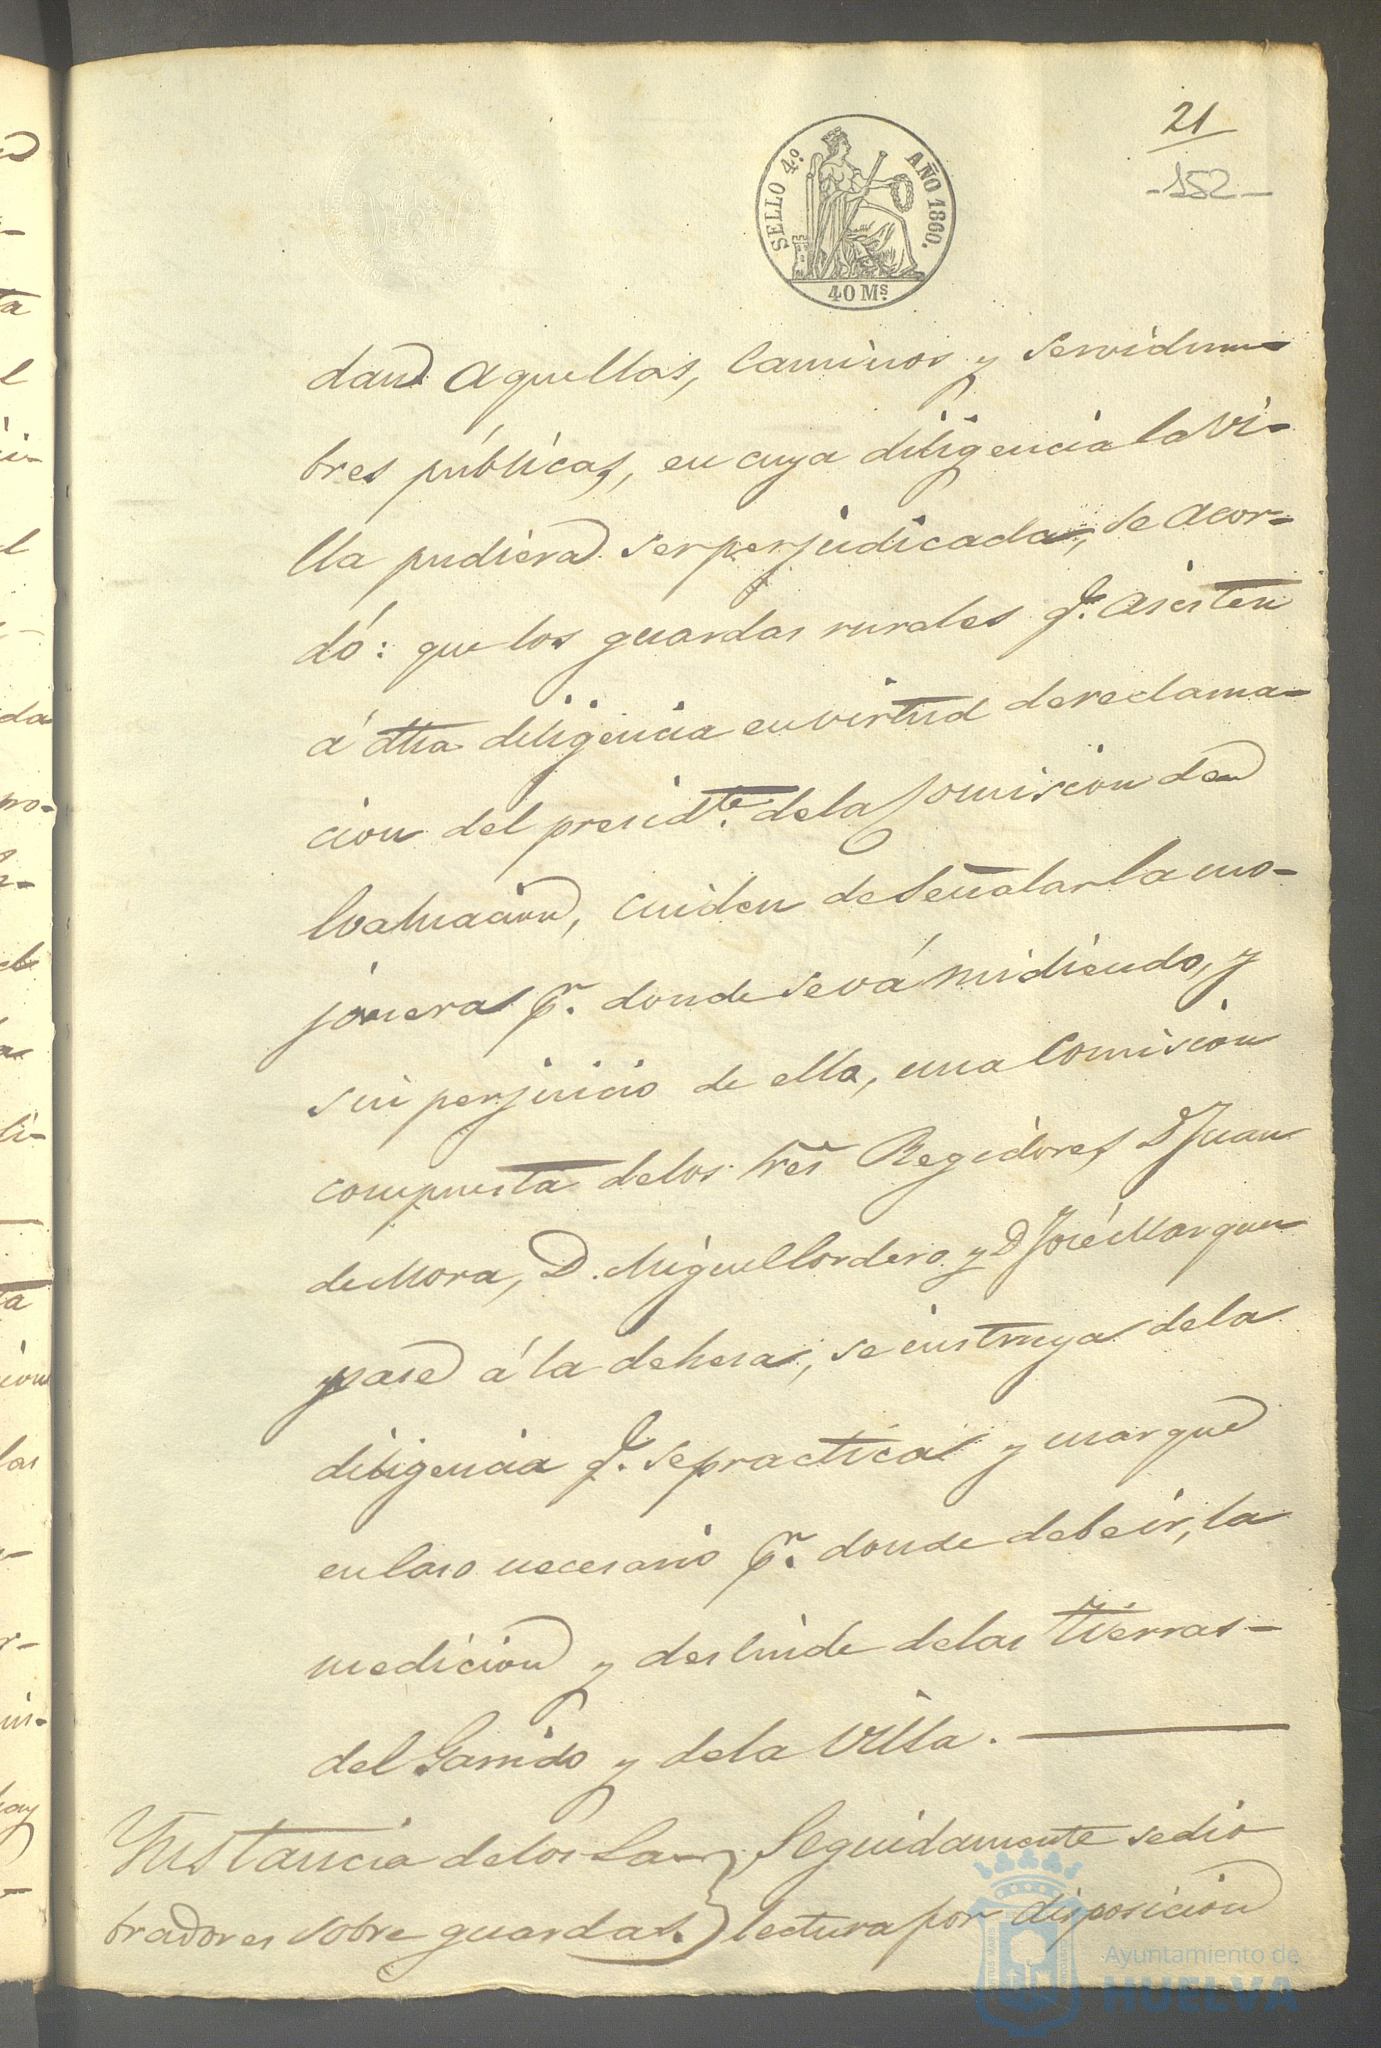 21
-152-
SELLO 4.º AÑO 1860.
40 Ms.
dand aquellas, Caminos y servidum-
bres públicas, en cuya diligencia la Vi-
lla pudiera ser perjudicada, se acor-
dó: que los guardas rurales q.e asisten
á dha diligencia en virtud de reclama-
cion del presid.te de la Comision de
Evaluacion, cuiden de señalar la mo-
jonera p.r donde se vá midiendo, y
sin perjuicio de ella, una Comision
compuesta de los tres Regidores D Juan
de Mora, D. Miguel Cordero y D José Marquez
pase á la dehesa, se instruya de la
diligencia q.e se practica y marque
en Caso necesario p.r donde debe ir, la
medicion y deslinde de las Tierras-
del Garrido y de la Villa.
Instancia de los La-
bradores sobre guardas.
Seguidamente se dio
lectura por disposicion
Ayuntamiento de
HUELVA